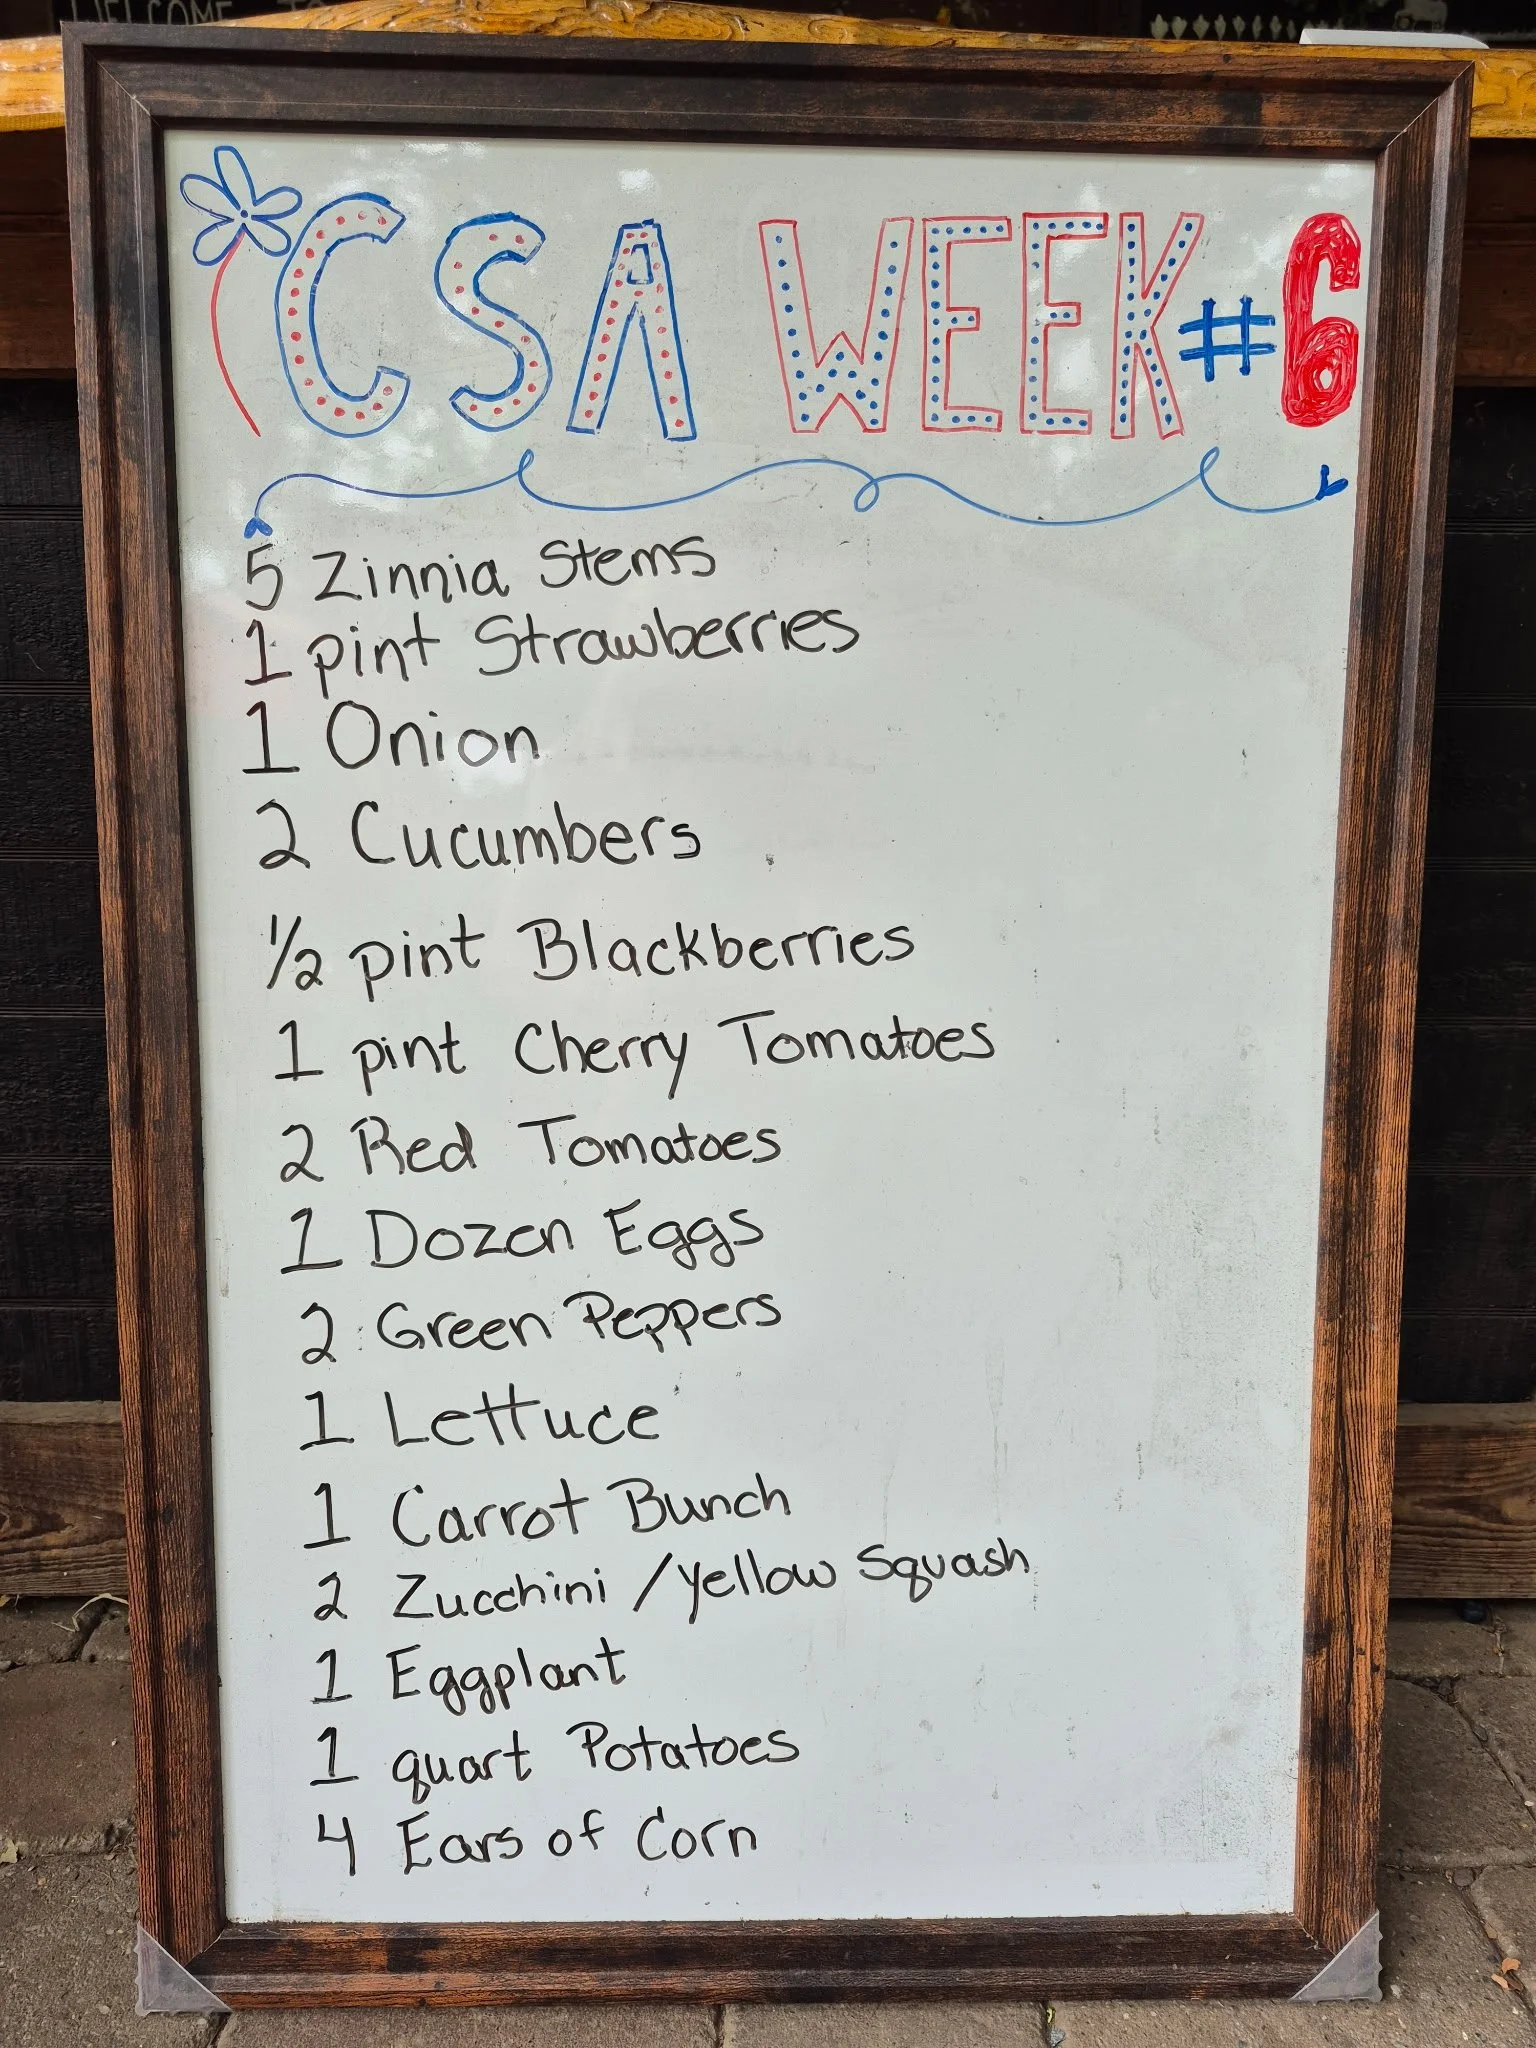 WELCOME TO
CSA WEEK #6
5 Zinnia Stems
1 pint Strawberries
1 Onion
2 Cucumbers
1/2 pint Blackberries
1 pint Cherry Tomatoes
2 Red Tomatoes
1 Dozen Eggs
2 Green Peppers
1 Lettuce
1 Carrot Bunch
2 Zucchini / yellow Squash
1 Eggplant
1 quart Potatoes
4 Ears of Corn